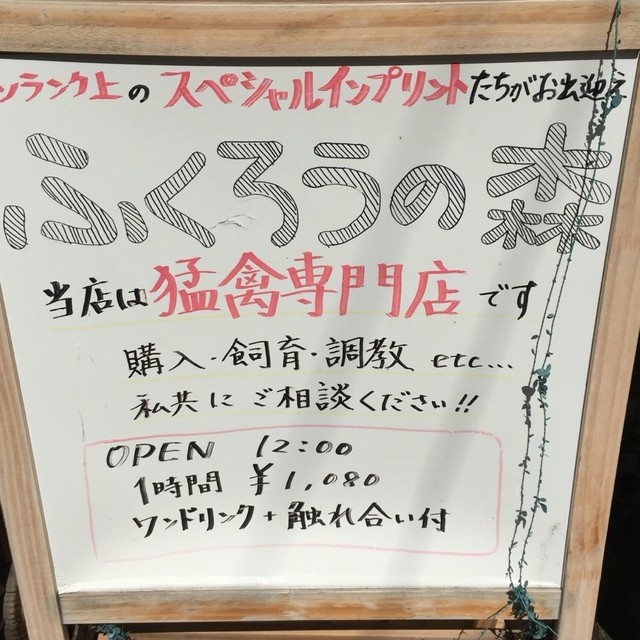 ンランク上の スペシャルインプリントたちがお出迎え
ふくろうの森
当店は猛禽専門店です
購入・飼育・調教 etc...
私共に ご相談ください!!
OPEN 12:00
1時間 ¥1,080
ワンドリンク+触れ合い付